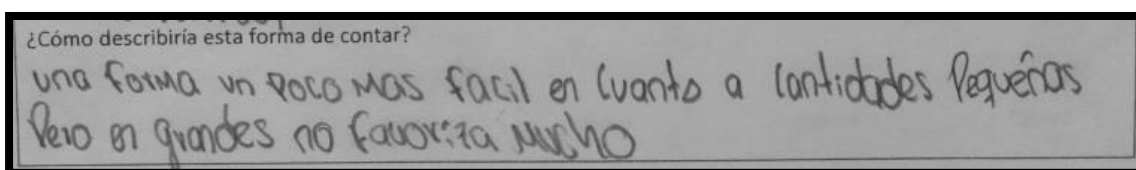 ¿Cómo describiría esta forma de contar?
una forma un poco mas facil en cuanto a cantidades Pequeñas
Pero en grandes no favoriza mucho